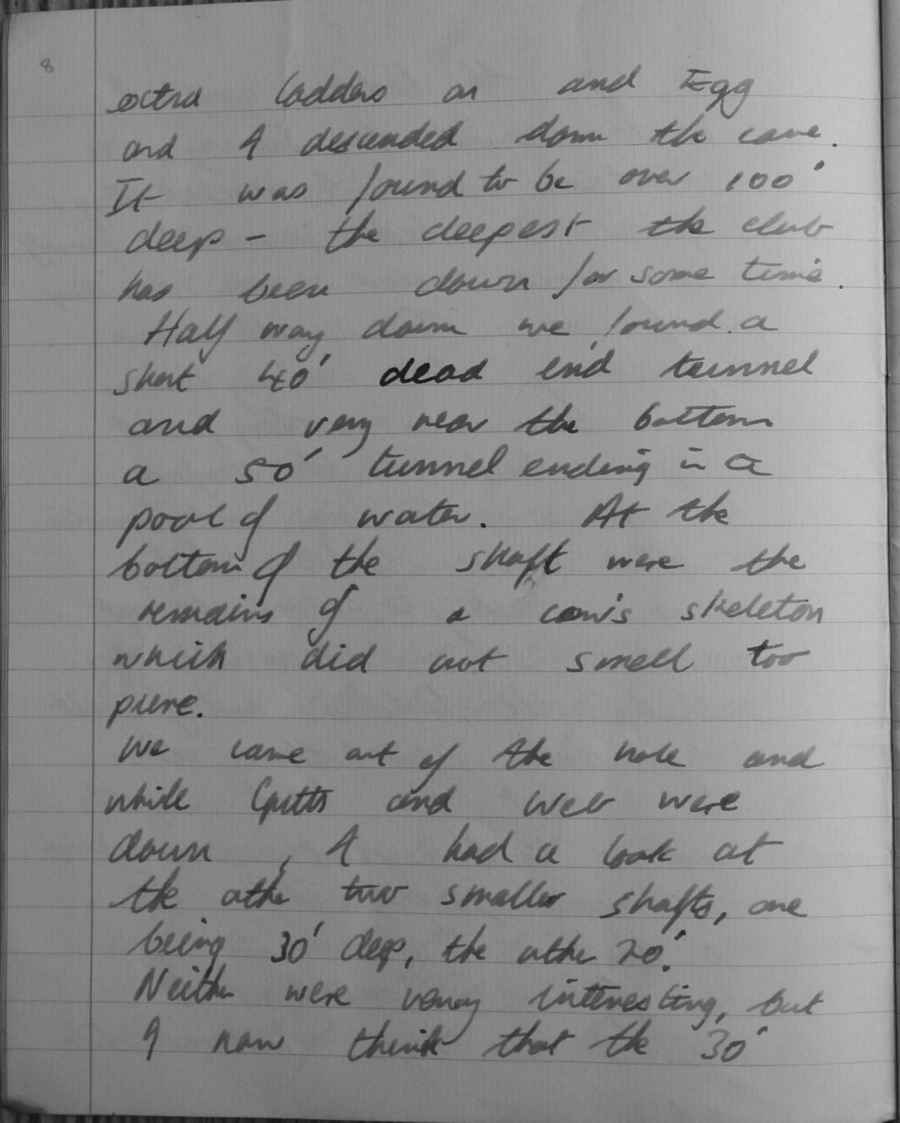 8
extra ladders on and Egg
and I descended down the cave.
It was found to be over 100'
deep - the deepest the club
has been down for some time.
Half way down we found a
short 40' dead end tunnel
and very near the bottom
a 50' tunnel ending in a
pool of water. At the
bottom of the shaft were the
remains of a cow's skeleton
which did not smell too
pure.
We came out of the hole and
while and were
down, I had a look at
the other two smaller shafts, one
being 30' deep, the other 20'.
Neither were verey interesting, but
I now think that the 30'